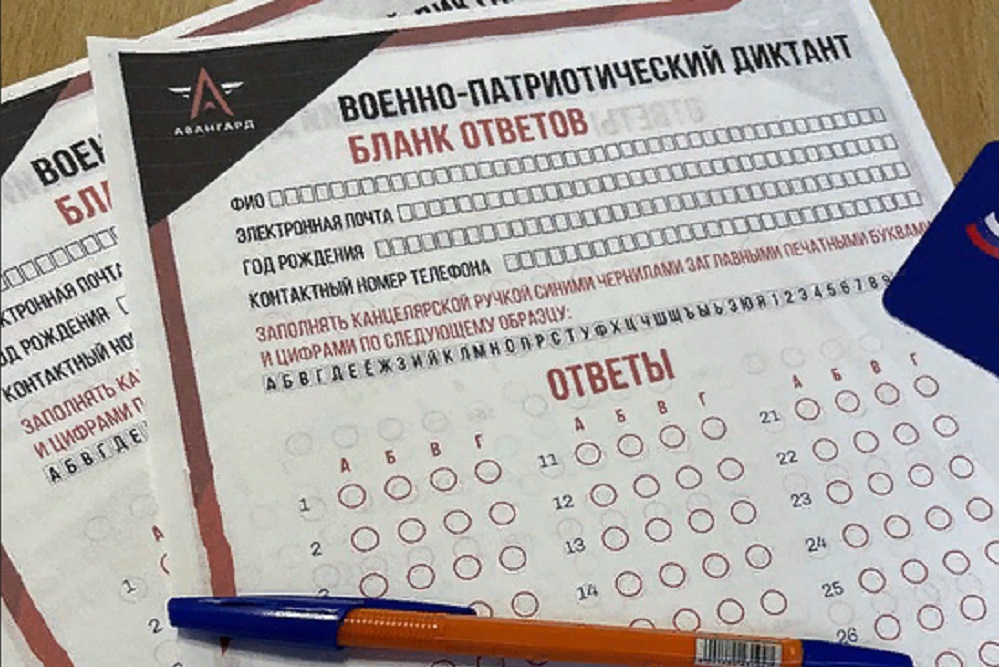 АВАНГАРД
ВОЕННО-ПАТРИОТИЧЕСКИЙ ДИКТАНТ
БЛАНК ОТВЕТОВ
ФИО
ЭЛЕКТРОННАЯ ПОЧТА
ГОД РОЖДЕНИЯ
КОНТАКТНЫЙ НОМЕР ТЕЛЕФОНА
ЗАПОЛНЯТЬ КАНЦЕЛЯРСКОЙ РУЧКОЙ СИНИМИ ЧЕРНИЛАМИ ЗАГЛАВНЫМИ ПЕЧАТНЫМИ БУКВАМИ
И ЦИФРАМИ ПО СЛЕДУЮЩЕМУ ОБРАЗЦУ:
А Б В Г Д Е Ё Ж З И Й К Л М Н О П Р С Т У Ф Х Ц Ч Ш Щ Ъ Ы Ь Э Ю Я 1 2 3 4 5 6 7 8 9
ОТВЕТЫ
А Б В Г
А Б В Г
А Б В Г
1 11 21
2 12 22
13 23
14 24
25
26
ВОЕН
БЛ
КТРОННАЯ ПОЧТА
ОД РОЖДЕНИЯ
КОНТАКТНЫЙ НО
ЗАПОЛНЯТЬ КА
И ЦИФРАМИ П
А Б В Г Д Е
А
1
2